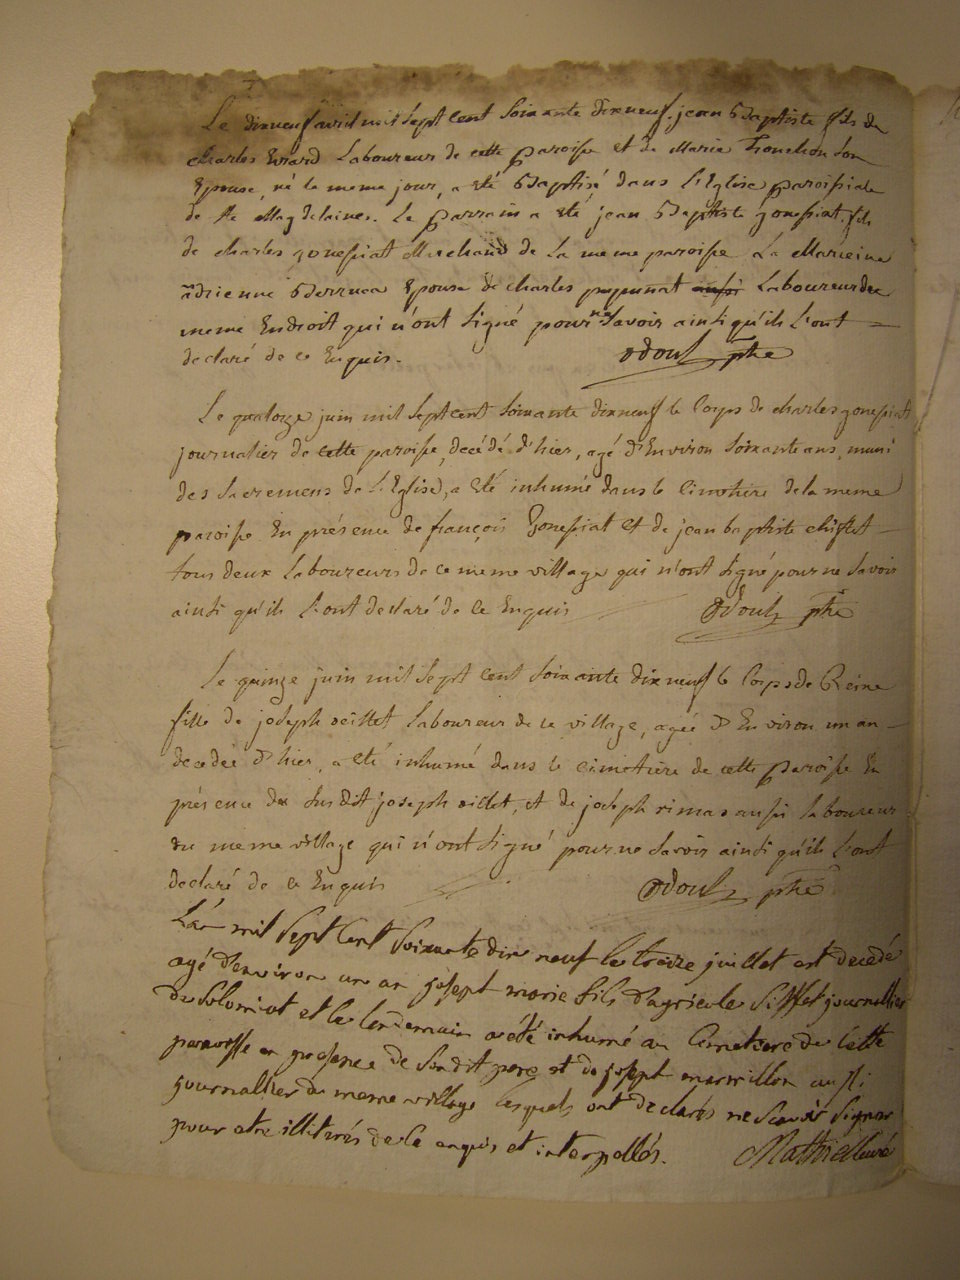 Le dixneuf avril mil sept cent soixante dixneuf. jean Baptiste fils de
charles Evrard Laboureur de cette paroisse et de Marie son
Epouse, né le meme jour, a eté Baptisé dans l'Eglise paroissiale
de Ste Magdelaine. Le parrain a eté jean Baptiste gonessiat fils
de charles gonessiat Marchand de La meme paroisse La Mareine
adrienne Epouse de charles Laboureur du
meme Endroit qui n'ont signé pour ne savoir ainsi qu'ils l'ont
declaré de ce Enquis. odoul ptre
Le quatorze juin mil sept cent soixante dixneuf le Corps de charles gonessiat
journalier de cette paroisse, decédé d'hier, agé d'Environ soixante ans, muni
des sacremens de l'Eglise, a eté inhumé dans le Cimetiere de la meme
paroisse En présence de françois Gonessiat et de jean baptiste chiflet
tous deux Laboureurs de ce meme village qui n'ont signé pour ne savoir
ainsi qu'ils l'ont declaré de ce Enquis Odoul ptre
Le quinze juin mil sept cent soixante dixneuf le Corps de Reine
fille de joseph laboureur de ce village, agée d'Environ un an
decedée d'hier, a eté inhumé dans le cimetiere de cette paroisse En
présence du susdit joseph et de joseph aussi laboureur
du meme village qui n'ont signé pour ne savoir ainsi qu'ils l'ont
declaré de ce Enquis odoul ptre
L'an mil sept cent soixante dix neuf le treize juillet est decedé
agé d'environ un an josept marie fils d'agricole Sifflet journallier
de Solomiat et le lendemain a été inhumé au Cimetiere de Cette
paroisse en presence de son dit pere et de josept marmillon aussi
journallier du meme village lesquels ont declarés ne scavoir signer
pour etre illiterés de ce enquis et interpellés. Mathieu curé